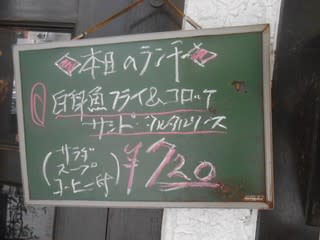 本日のランチ
白身魚フライ&コロッケ
サンド・タルタルソース
(サラダ
スープ
コーヒー付)
¥720